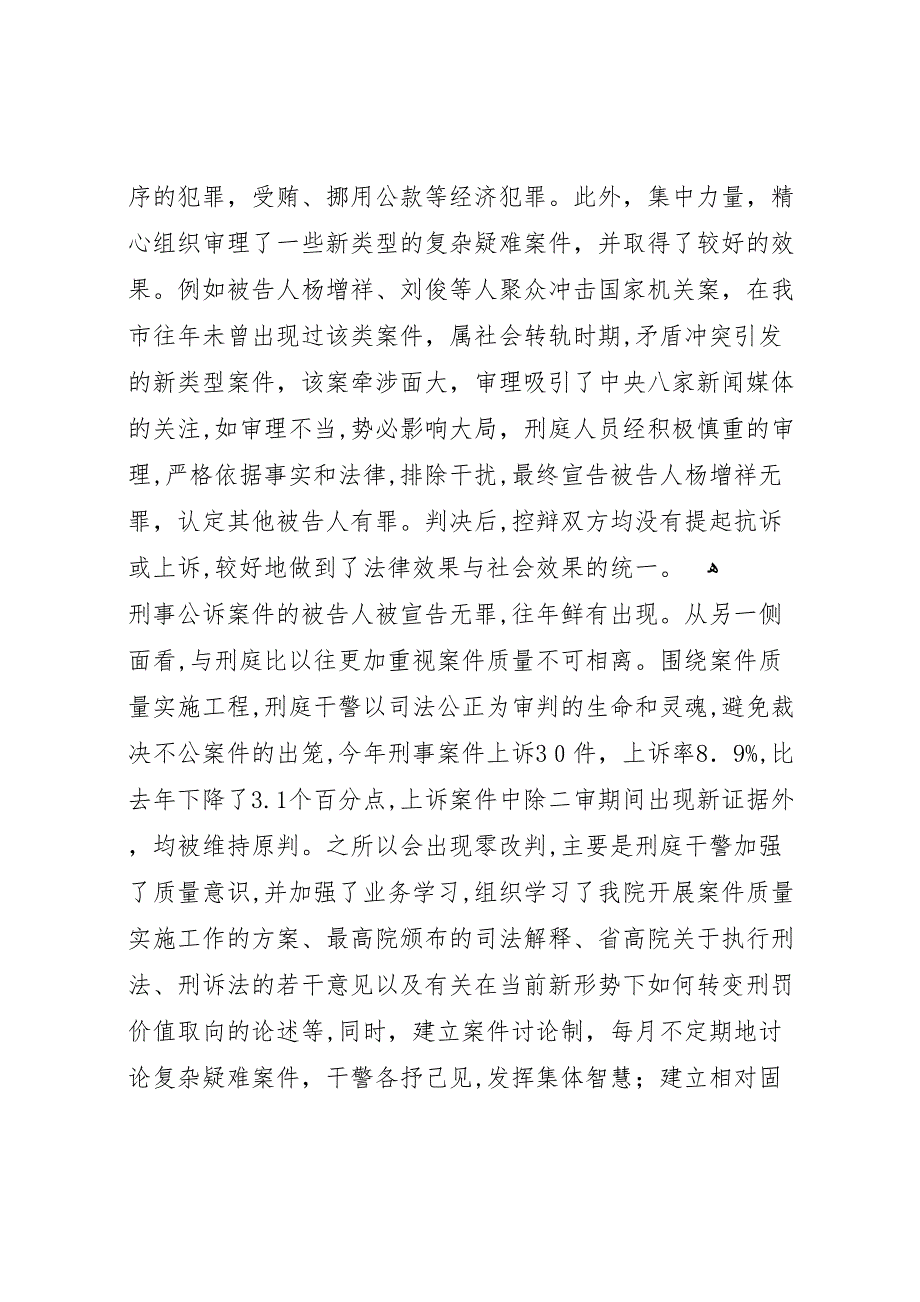 序的犯罪，受贿、挪用公款等经济犯罪。此外，集中力量，精
心组织审理了一些新类型的复杂疑难案件，并取得了较好的效
果。例如被告人杨增祥、刘俊等人聚众冲击国家机关案，在我
市往年未曾出现过该类案件，属社会转轨时期,矛盾冲突引发
的新类型案件，该案牵涉面大，审理吸引了中央八家新闻媒体
的关注,如审理不当,势必影响大局，刑庭人员经积极慎重的审
理,严格依据事实和法律,排除干扰,最终宣告被告人杨增祥无
罪，认定其他被告人有罪。判决后,控辩双方均没有提起抗诉
或上诉,较好地做到了法律效果与社会效果的统一。 ﻫ
刑事公诉案件的被告人被宣告无罪,往年鲜有出现。从另一侧
面看,与刑庭比以往更加重视案件质量不可相离。围绕案件质
量实施工程,刑庭干警以司法公正为审判的生命和灵魂,避免裁
决不公案件的出笼,今年刑事案件上诉30件，上诉率8．9%,比
去年下降了3.1个百分点,上诉案件中除二审期间出现新证据外
，均被维持原判。之所以会出现零改判,主要是刑庭干警加强
了质量意识,并加强了业务学习,组织学习了我院开展案件质量
实施工作的方案、最高院颁布的司法解释、省高院关于执行刑
法、刑诉法的若干意见以及有关在当前新形势下如何转变刑罚
价值取向的论述等,同时，建立案件讨论制，每月不定期地讨
论复杂疑难案件，干警各抒己见,发挥集体智慧；建立相对固